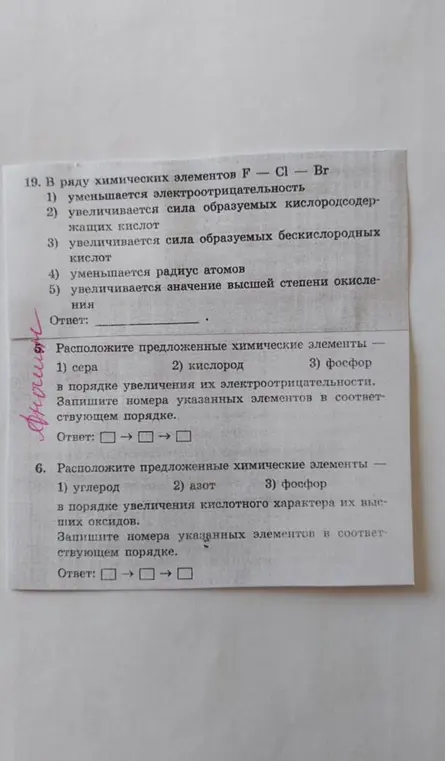 19. В ряду химических элементов F — Cl — Br
1) уменьшается электроотрицательность
2) увеличивается сила образуемых кислородсодер-
жащих кислот
3) увеличивается сила образуемых бескислородных
кислот
4) уменьшается радиус атомов
5) увеличивается значение высшей степени окисле-
ния
Ответ: ______________ .
Расположите предложенные химические элементы —
1) сера 2) кислород 3) фосфор
в порядке увеличения их электроотрицательности.
Запишите номера указанных элементов в соответ-
ствующем порядке.
Ответ: □ → □ → □
6. Расположите предложенные химические элементы —
1) углерод 2) азот 3) фосфор
в порядке увеличения кислотного характера их выс-
ших оксидов.
Запишите номера указанных элементов в соответ-
ствующем порядке.
Ответ: □ → □ → □